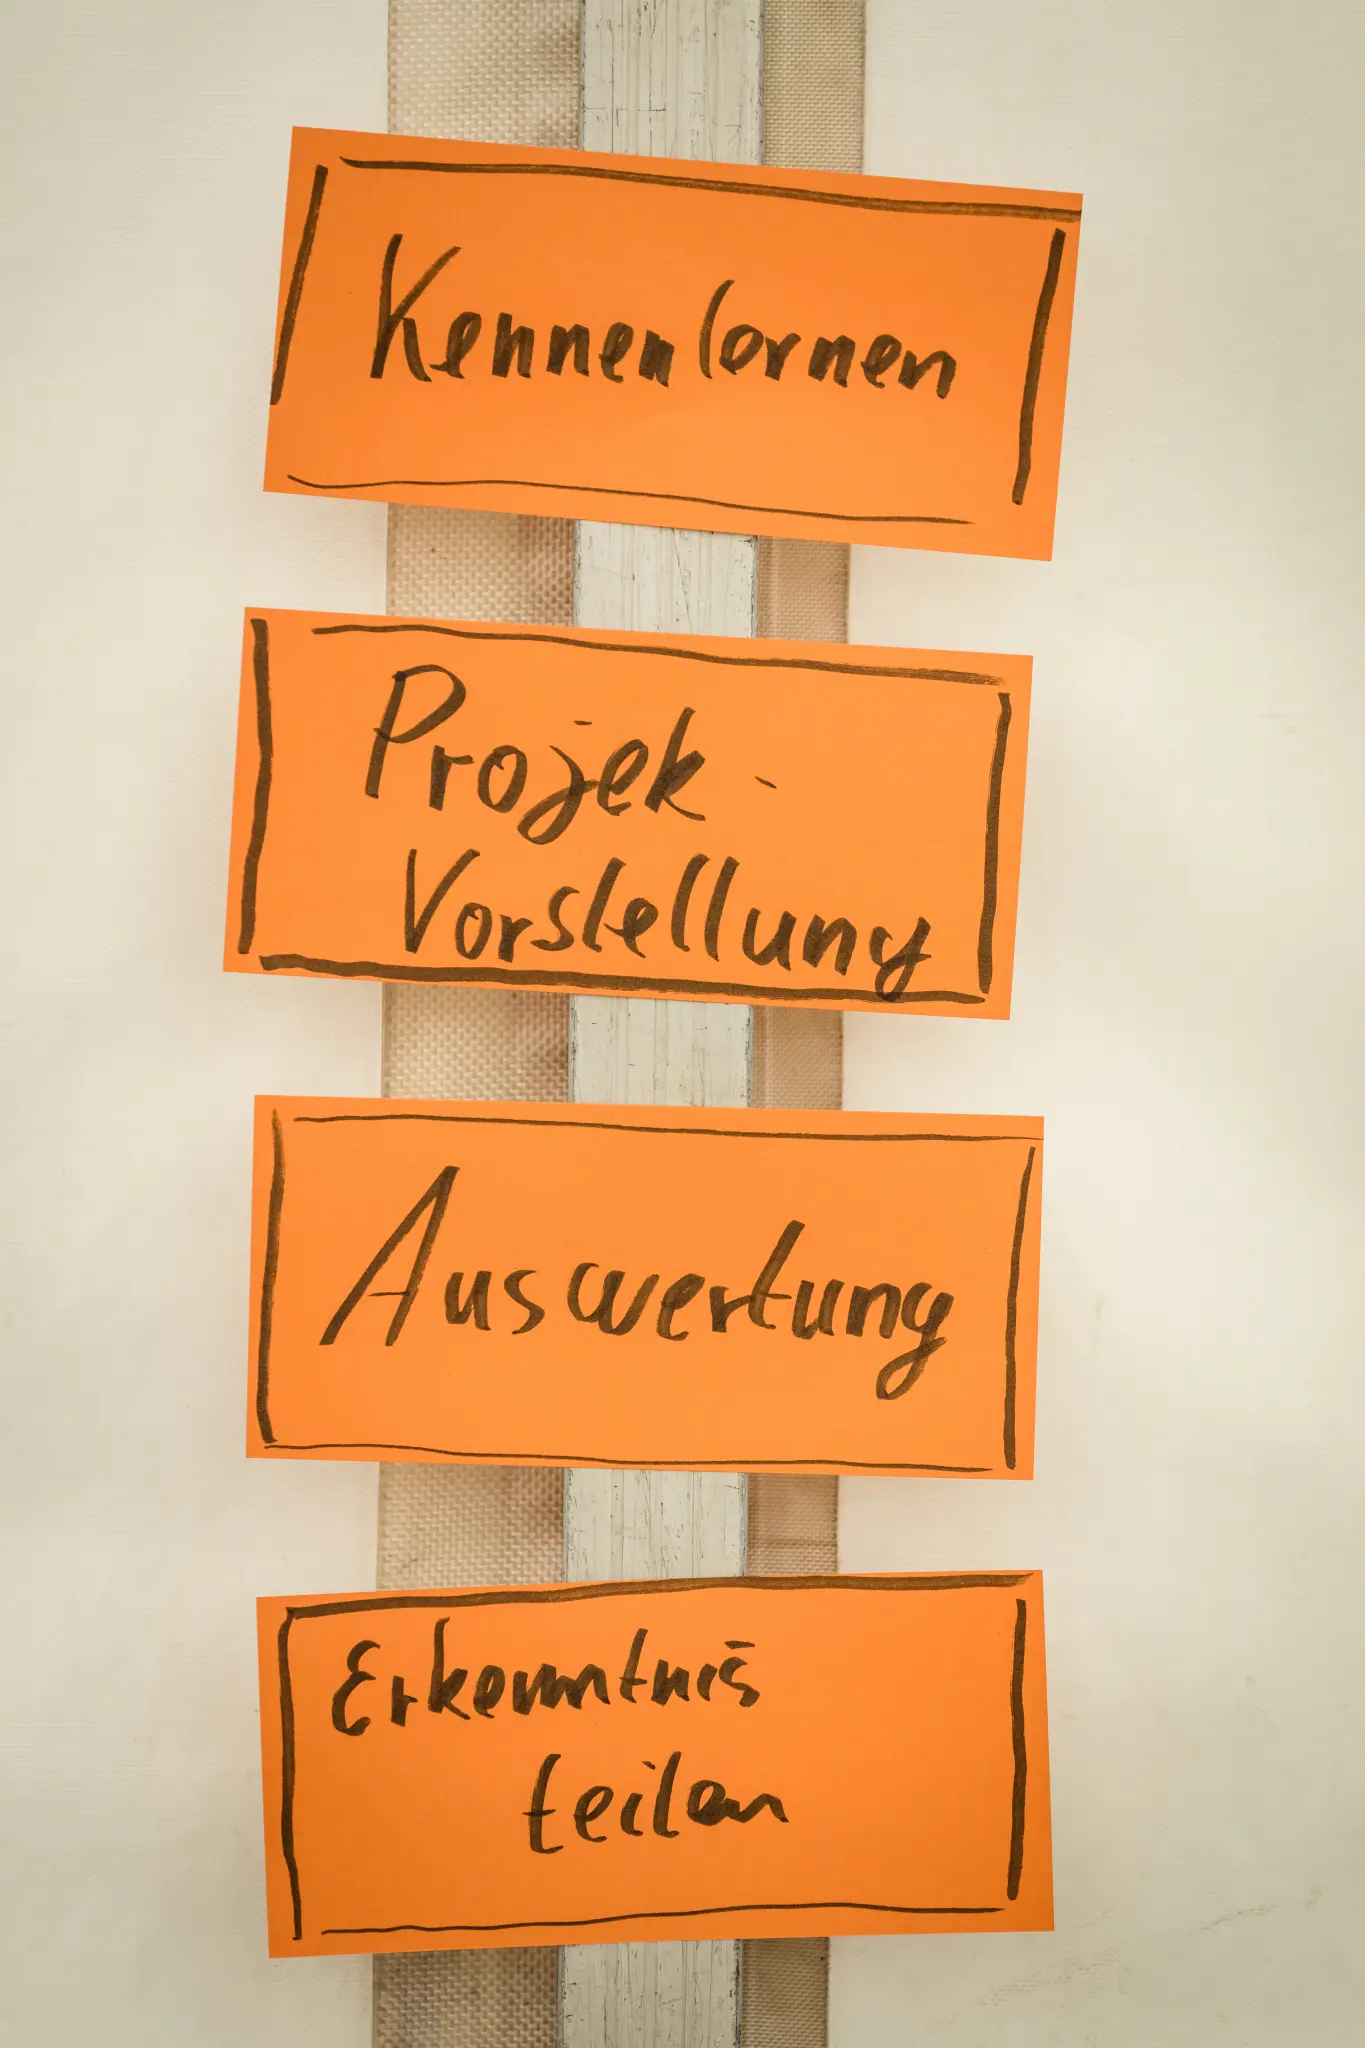 Kennenlernen
Projek-
Vorstellung
Auswertung
Erkenntnis
teilen